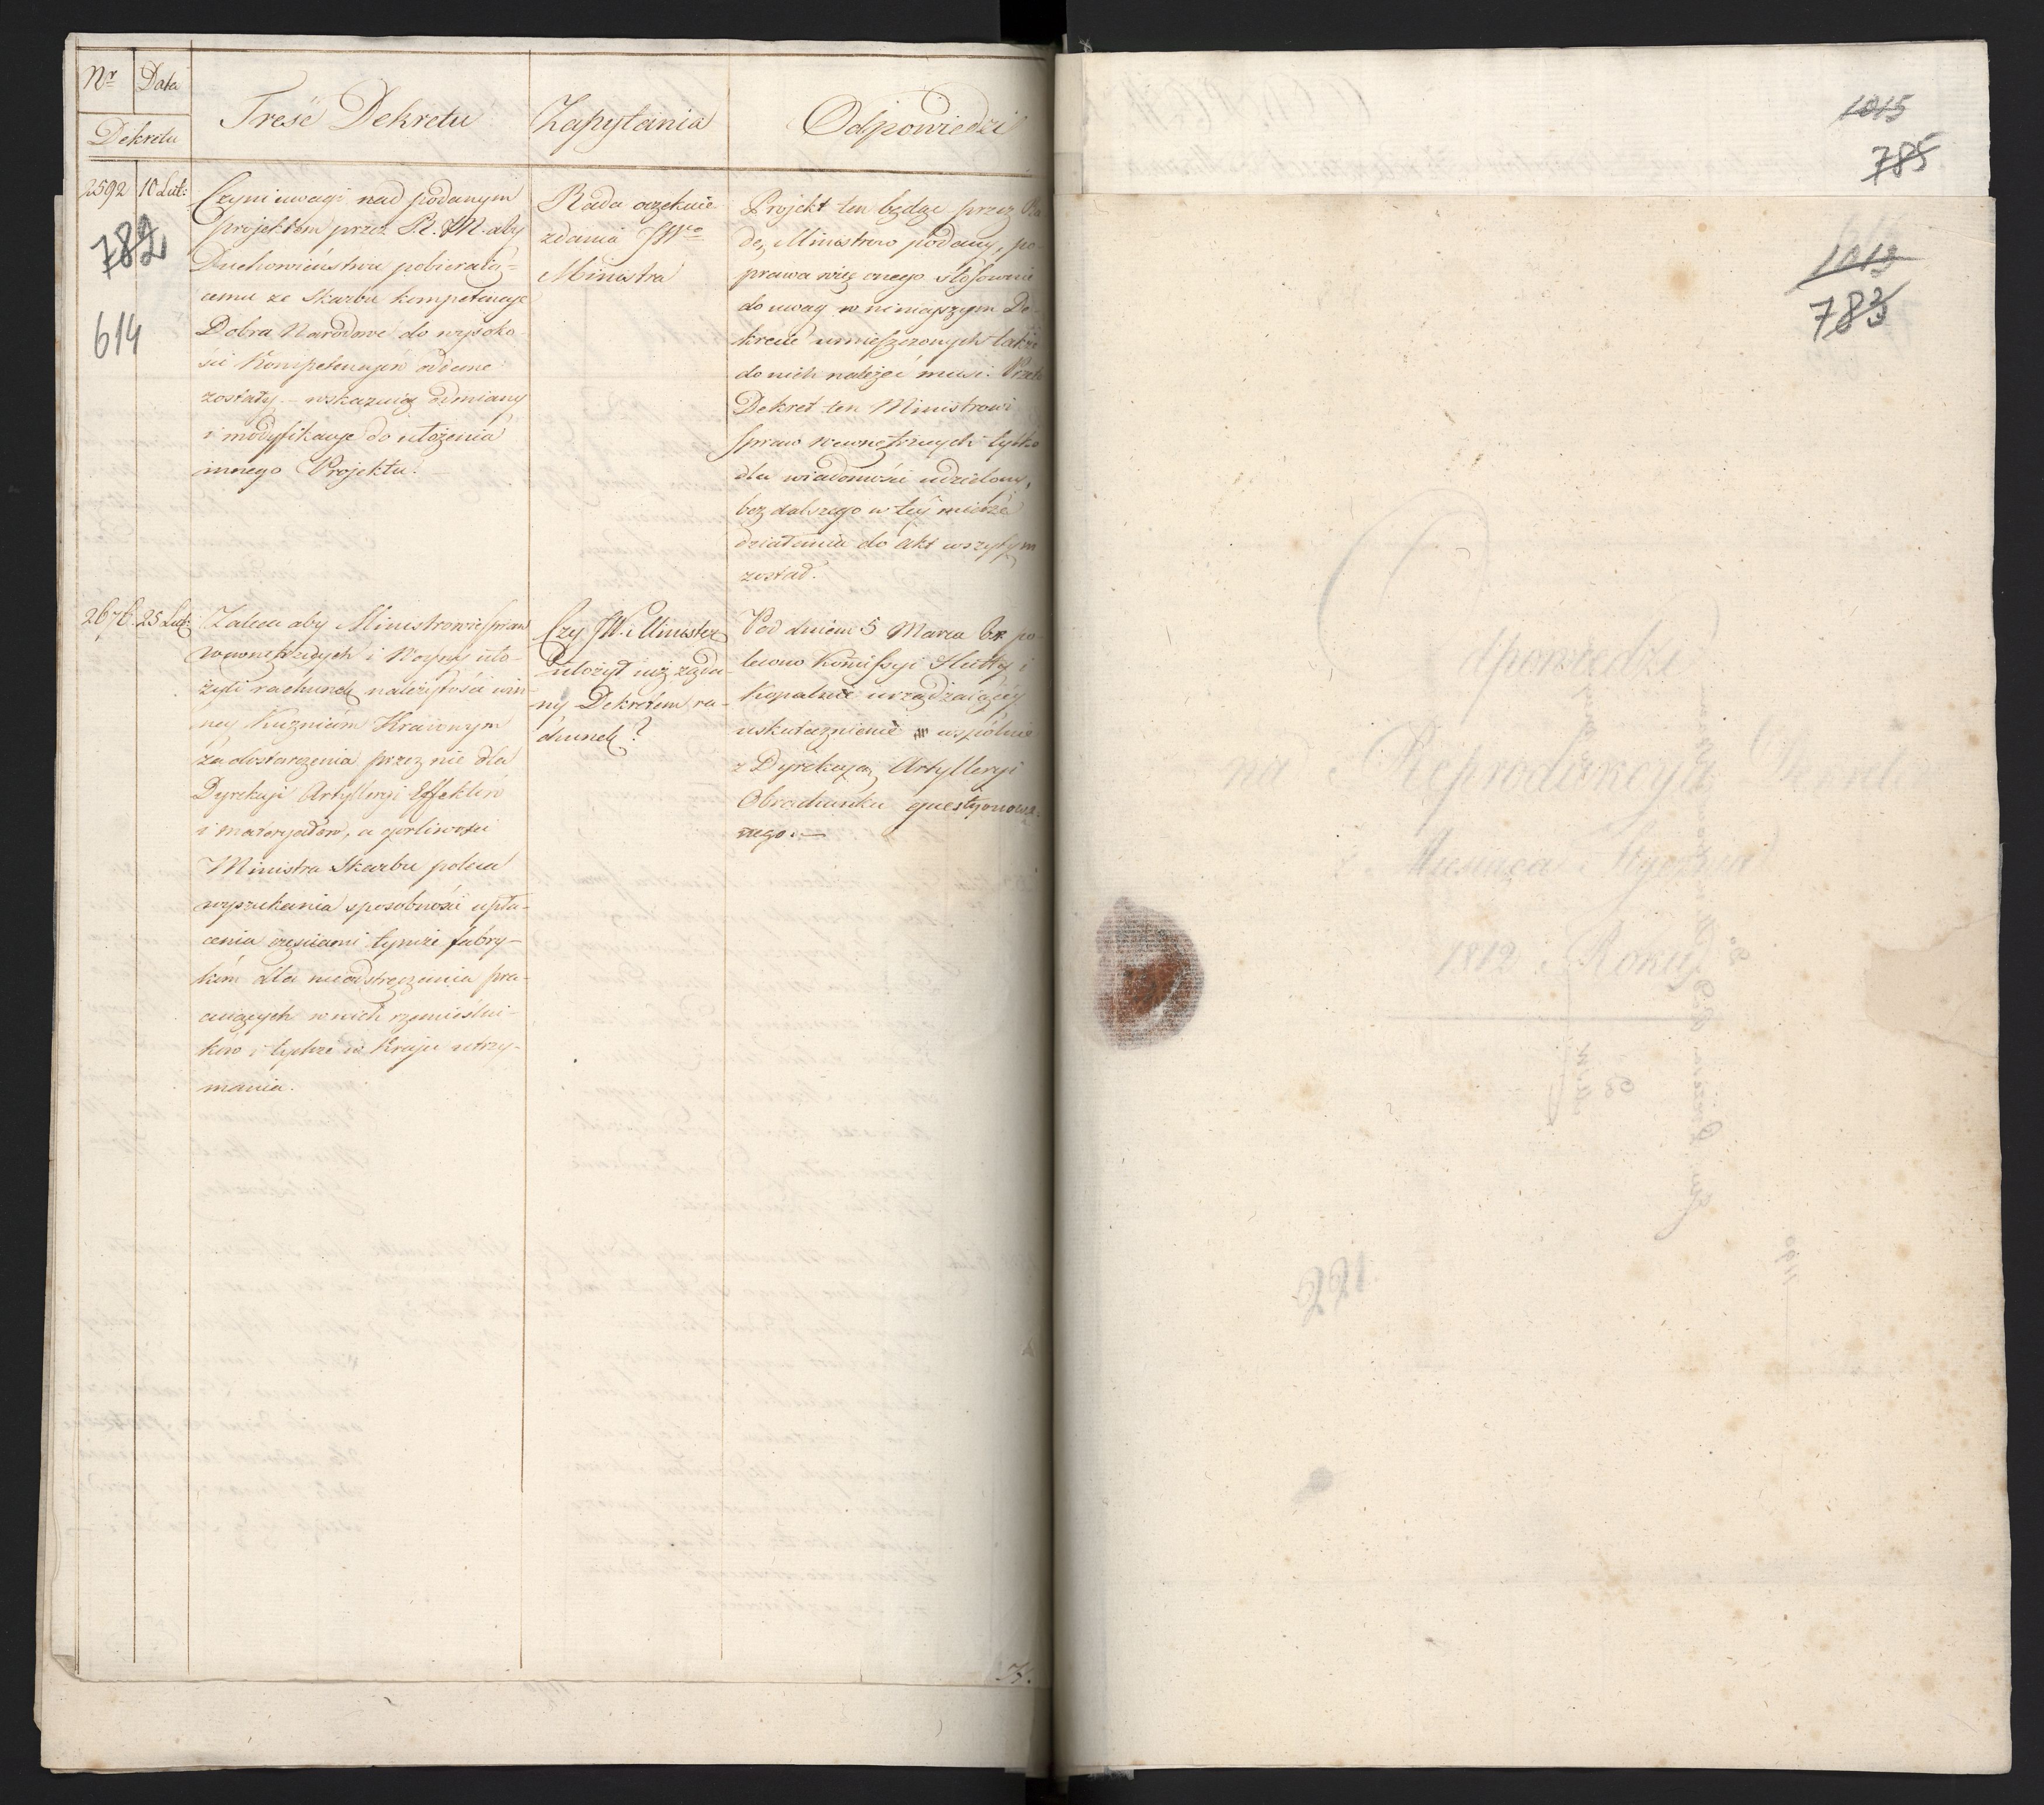 Nr Data
Dekretu
Treść Dekretu
Zapytania
Odpowiedzi
2592 10 Lut:
782
614
Czyni uwagi nad podanym
projektem przez R. M. aby
Duchowieństwu pobieraią-
cemu ze Skarbu kompetencye
Dobra Narodowe do wysoko-
ści Kompetencyów oddane
zostały. – wskazuiąc odmiany
i modyfikacye do ułożenia
innego Projektu. –
Rada oczekuie
zdania JWgo
Ministra
Projekt ten będąc przez Ra
dę Ministrow podany, po-
prawa więc onego stosownie
do uwag w ninieyszym De-
krecie umieszczonych także
do nich należeć musi.
Dekret ten Ministrowi
Spraw Wewnętrznych tylko
dla wiadomości udzielony,
bez dalszego w tey mierze
działania do akt wszytym
został.
2676. 25 Lut:
Zaleca aby Ministrowie Spraw
Wewnętrznych i Woyny uło-
żyli rachunek należytości win-
ney Kuźniom Kraiowym
za dostarczenia przez nie dla
Dyrekcyi Artylleryi Effektów
i materyałów, a gorliwości
Ministra Skarbu poleca
wyszukania sposobności upła-
cenia częściami tymże fabry-
kom dla nieodstręczania pra-
cuiących w nich rzemieślni-
ków i tychże w Kraju utrzy-
mania.
Czy JW. Minister
ułożył iuż żąda-
ny Dekretem ra-
chunek?
Pod dniem 5 Marca br. po-
lecono Kommissyi Hutty i
Kopalnie urządzaiącéy
uskutecznienie wspólnie
z Dyrekcyą Artylleryi
Obrachunku questyonowa-
nego. –
1015
785
1013
783
dpowiedzi
na Reprodukcyą Dekretów
z Miesiąca Stycznia
1812 Roku
221